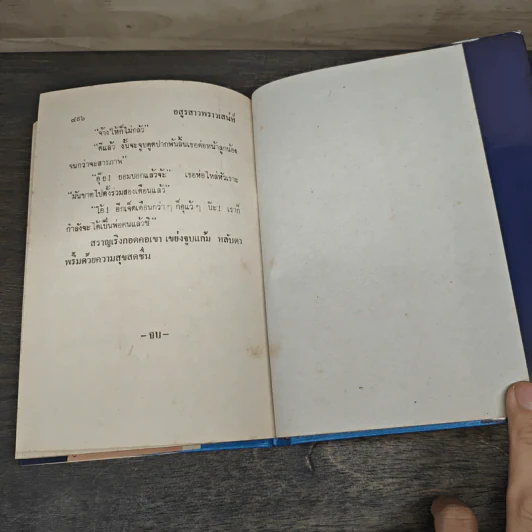 ๔๕๖ อสูรสาวพราวเสน่ห์
"จ้างให้ก็ไม่กลัว"
"ดีแล้ว งั้นจะจูบดูดปากพันลิ้นเธอต่อหน้าลูกน้อง
จนกว่าจะสารภาพ"
"อุ๊ย! ยอมบอกแล้วจ้ะ" เธอห่อไหล่หัวเราะ
"มันขาดไปตั้งร่วมสองเดือนแล้ว"
"โอ้! อีกเจ็ดเดือนกว่า ๆ ก็อุแว้ ๆ น๊ะ! เราก็
กำลังจะได้เป็นพ่อคนแล้วซี"
สราญเริงกอดคอเขา เขย่งจูบแก้ม หลับตา
พริ้มด้วยความสุขสดชื่น
– จบ –